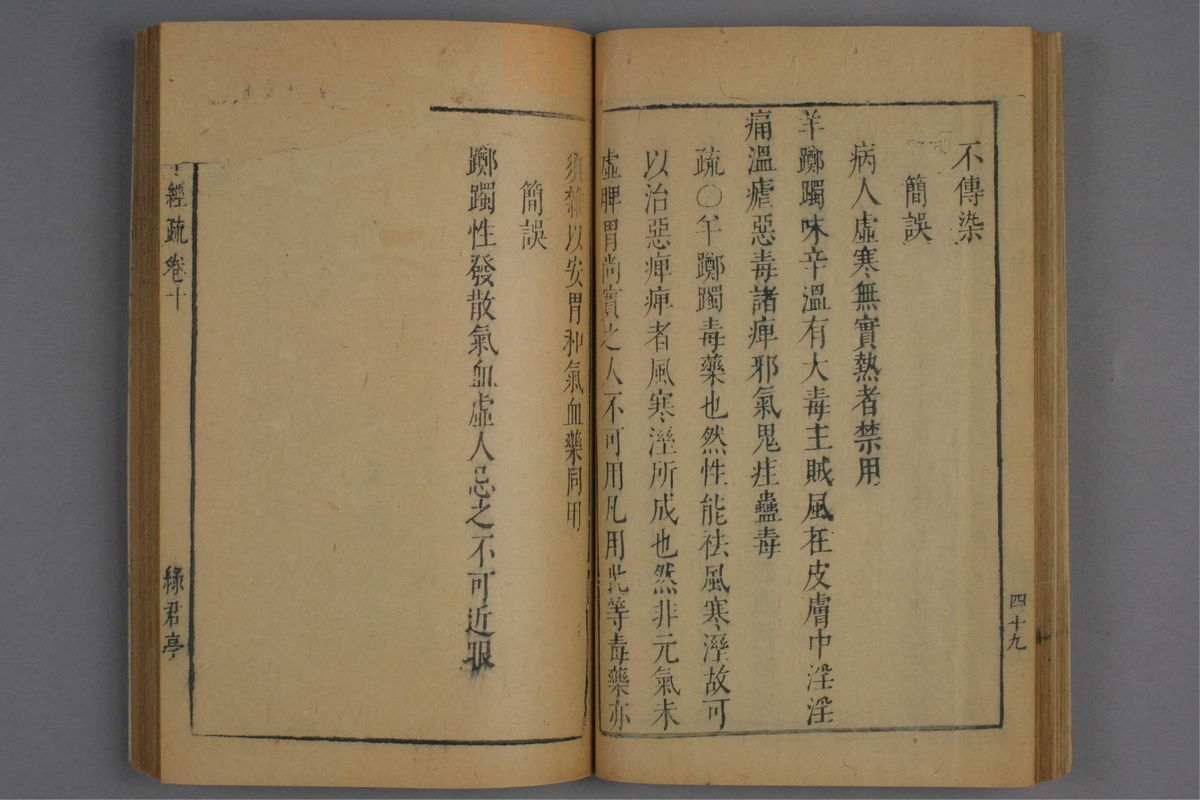 不傳染
簡誤
病人虛寒無實熱者禁用
羊躑躅味辛溫有大毒主賊風在皮膚中淫淫
痛溫瘧惡毒諸痺邪氣鬼疰蠱毒
疏〇羊躑躅毒藥也然性能祛風寒溼故可
以治惡痺痺者風寒溼所成也然非元氣未
虛脾胃尚實之人不可用凡用此等毒藥亦
四十九
須雜以安胃和氣血藥同用
簡誤
躑躅性發散氣血虛人忌之不可近眼
經疏卷十
綠君亭